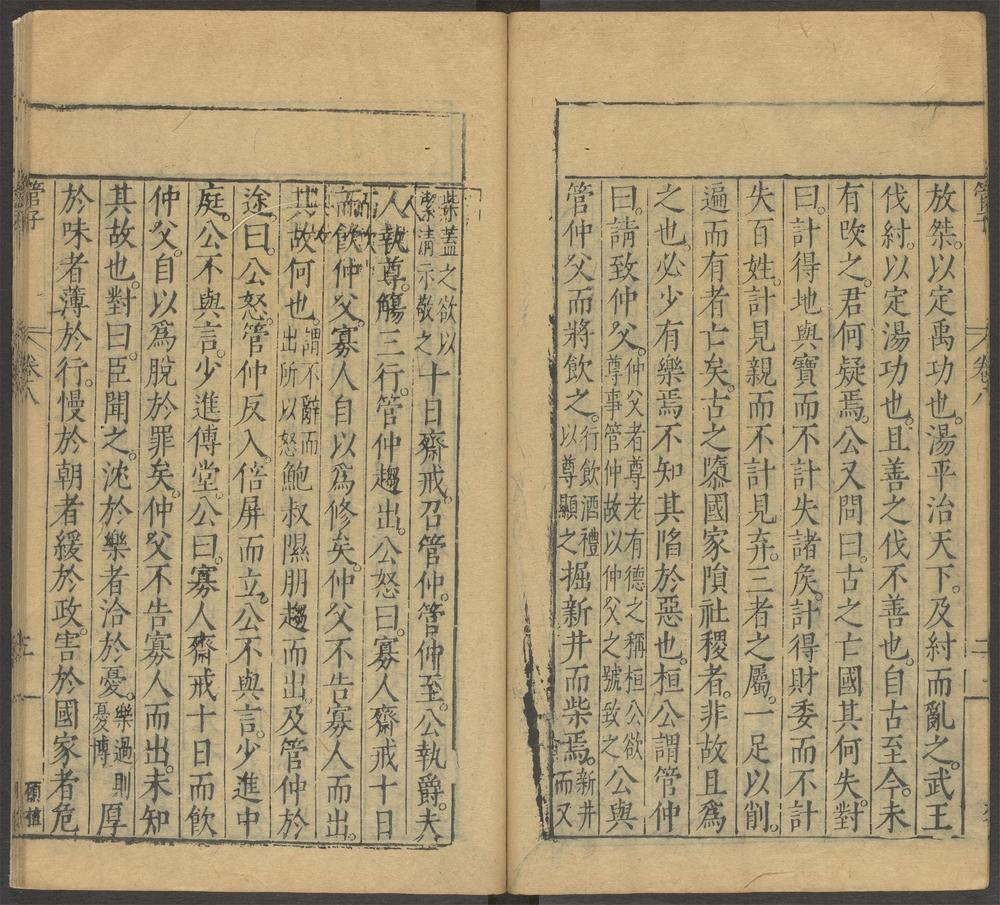 放桀。以定禹功也。湯平治天下。及紂而亂之。武王
伐紂。以定湯功也。且善之伐不善也。自古至今。未
有改之。君何疑焉。公又問曰。古之亡國其何失。對
曰。計得地與寶而不計失諸侯。計得財委而不計
失百姓。計見親而不計見弃。三者之屬。一足以削。
遍而有者亡矣。古之隳國家隕社稷者。非故且爲
之也。必少有樂焉。不知其陷於惡也。桓公謂管仲
曰。請致仲父。仲父者尊老有德之稱桓公欲尊事管仲故以仲父之號致之公與
管仲父而將飲之。行飲酒禮以尊顯之掘新井而柴焉。新井而又
柴蓋之欲以潔清示敬之十日齋戒。召管仲。管仲至。公執爵。夫
人執尊。觴三行。管仲趨出。公怒曰。寡人齋戒十日
而飲仲父。寡人自以爲修矣。仲父不告寡人而出。
其故何也。謂不辭而出所以怒鮑叔隰朋趨而出。及管仲於
途。曰。公怒。管仲反入。倍屏而立。公不與言。少進中
庭。公不與言。少進傅堂。公曰。寡人齋戒十日而飲
仲父。自以爲脫於罪矣。仲父不告寡人而出。未知
其故也。對曰。臣聞之。沈於樂者洽於憂。樂過則憂博厚
於味者薄於行。慢於朝者緩於政。害於國家者危
管子
卷八